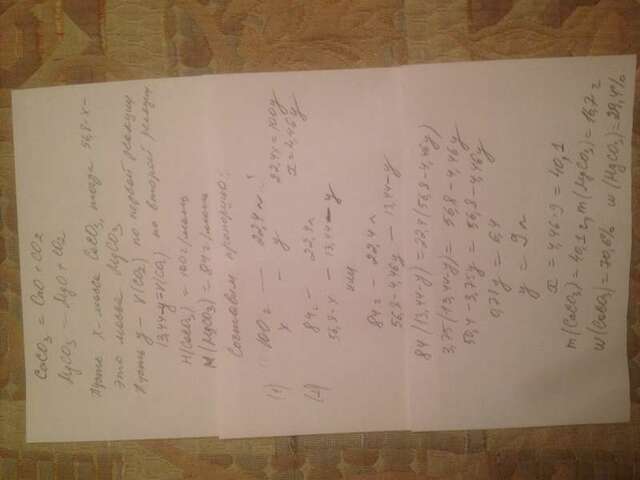 CaCO3 = CaO + CO2
MgCO3 = MgO + CO2
Пусть x - масса CaCO3, тогда 56,8-x -
это масса MgCO3
Пусть y - V(CO2) по первой реакции
13,44-y = V(CO2) по второй реакции
M(CaCO3) = 100 г/моль
M(MgCO3) = 84 г/моль
Составим пропорцию:
(1) 100 г — 22,4 л 22,4x = 100y
x — y x = 4,46y
(2) 84 г — 22,4 л
56,8-x — 13,44-y
или
84 г — 22,4 л
56,8-4,46y — 13,44-y
84(13,44-y) = 22,4(56,8-4,46y)
3,75(13,44-y) = 56,8-4,46y
50,4-3,75y = 56,8-4,46y
0,71y = 6,4
y = 9 л
x = 4,46·9 = 40,1
m(CaCO3) = 40,1 г, m(MgCO3) = 16,7 г
W(CaCO3) = 70,6% W(MgCO3) = 29,4%